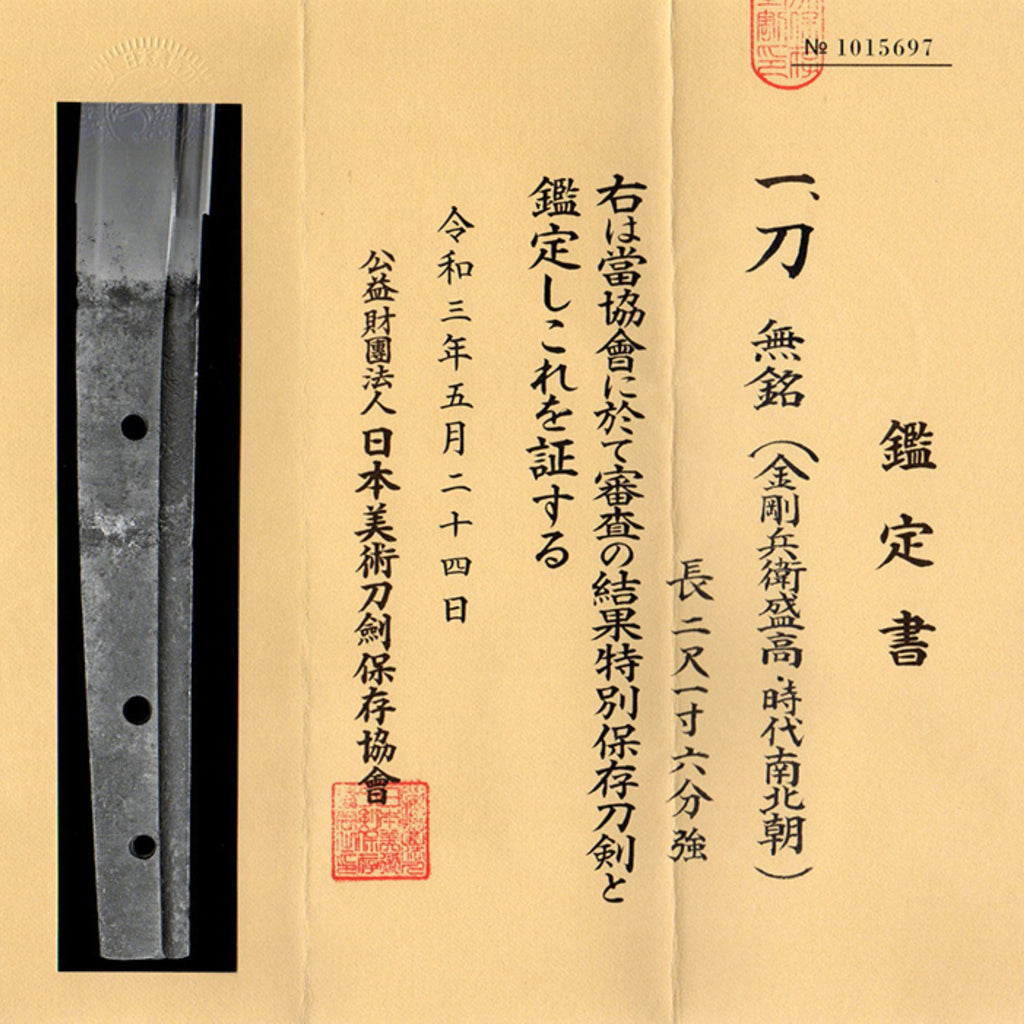 № 1015697
鑑定書
一、刀 無銘（金剛兵衛盛高・時代南北朝）
長二尺一寸六分強
右は當協會に於て審査の結果特別保存刀剣と
鑑定しこれを証する
令和三年五月二十四日
公益財團法人日本美術刀劍保存協會